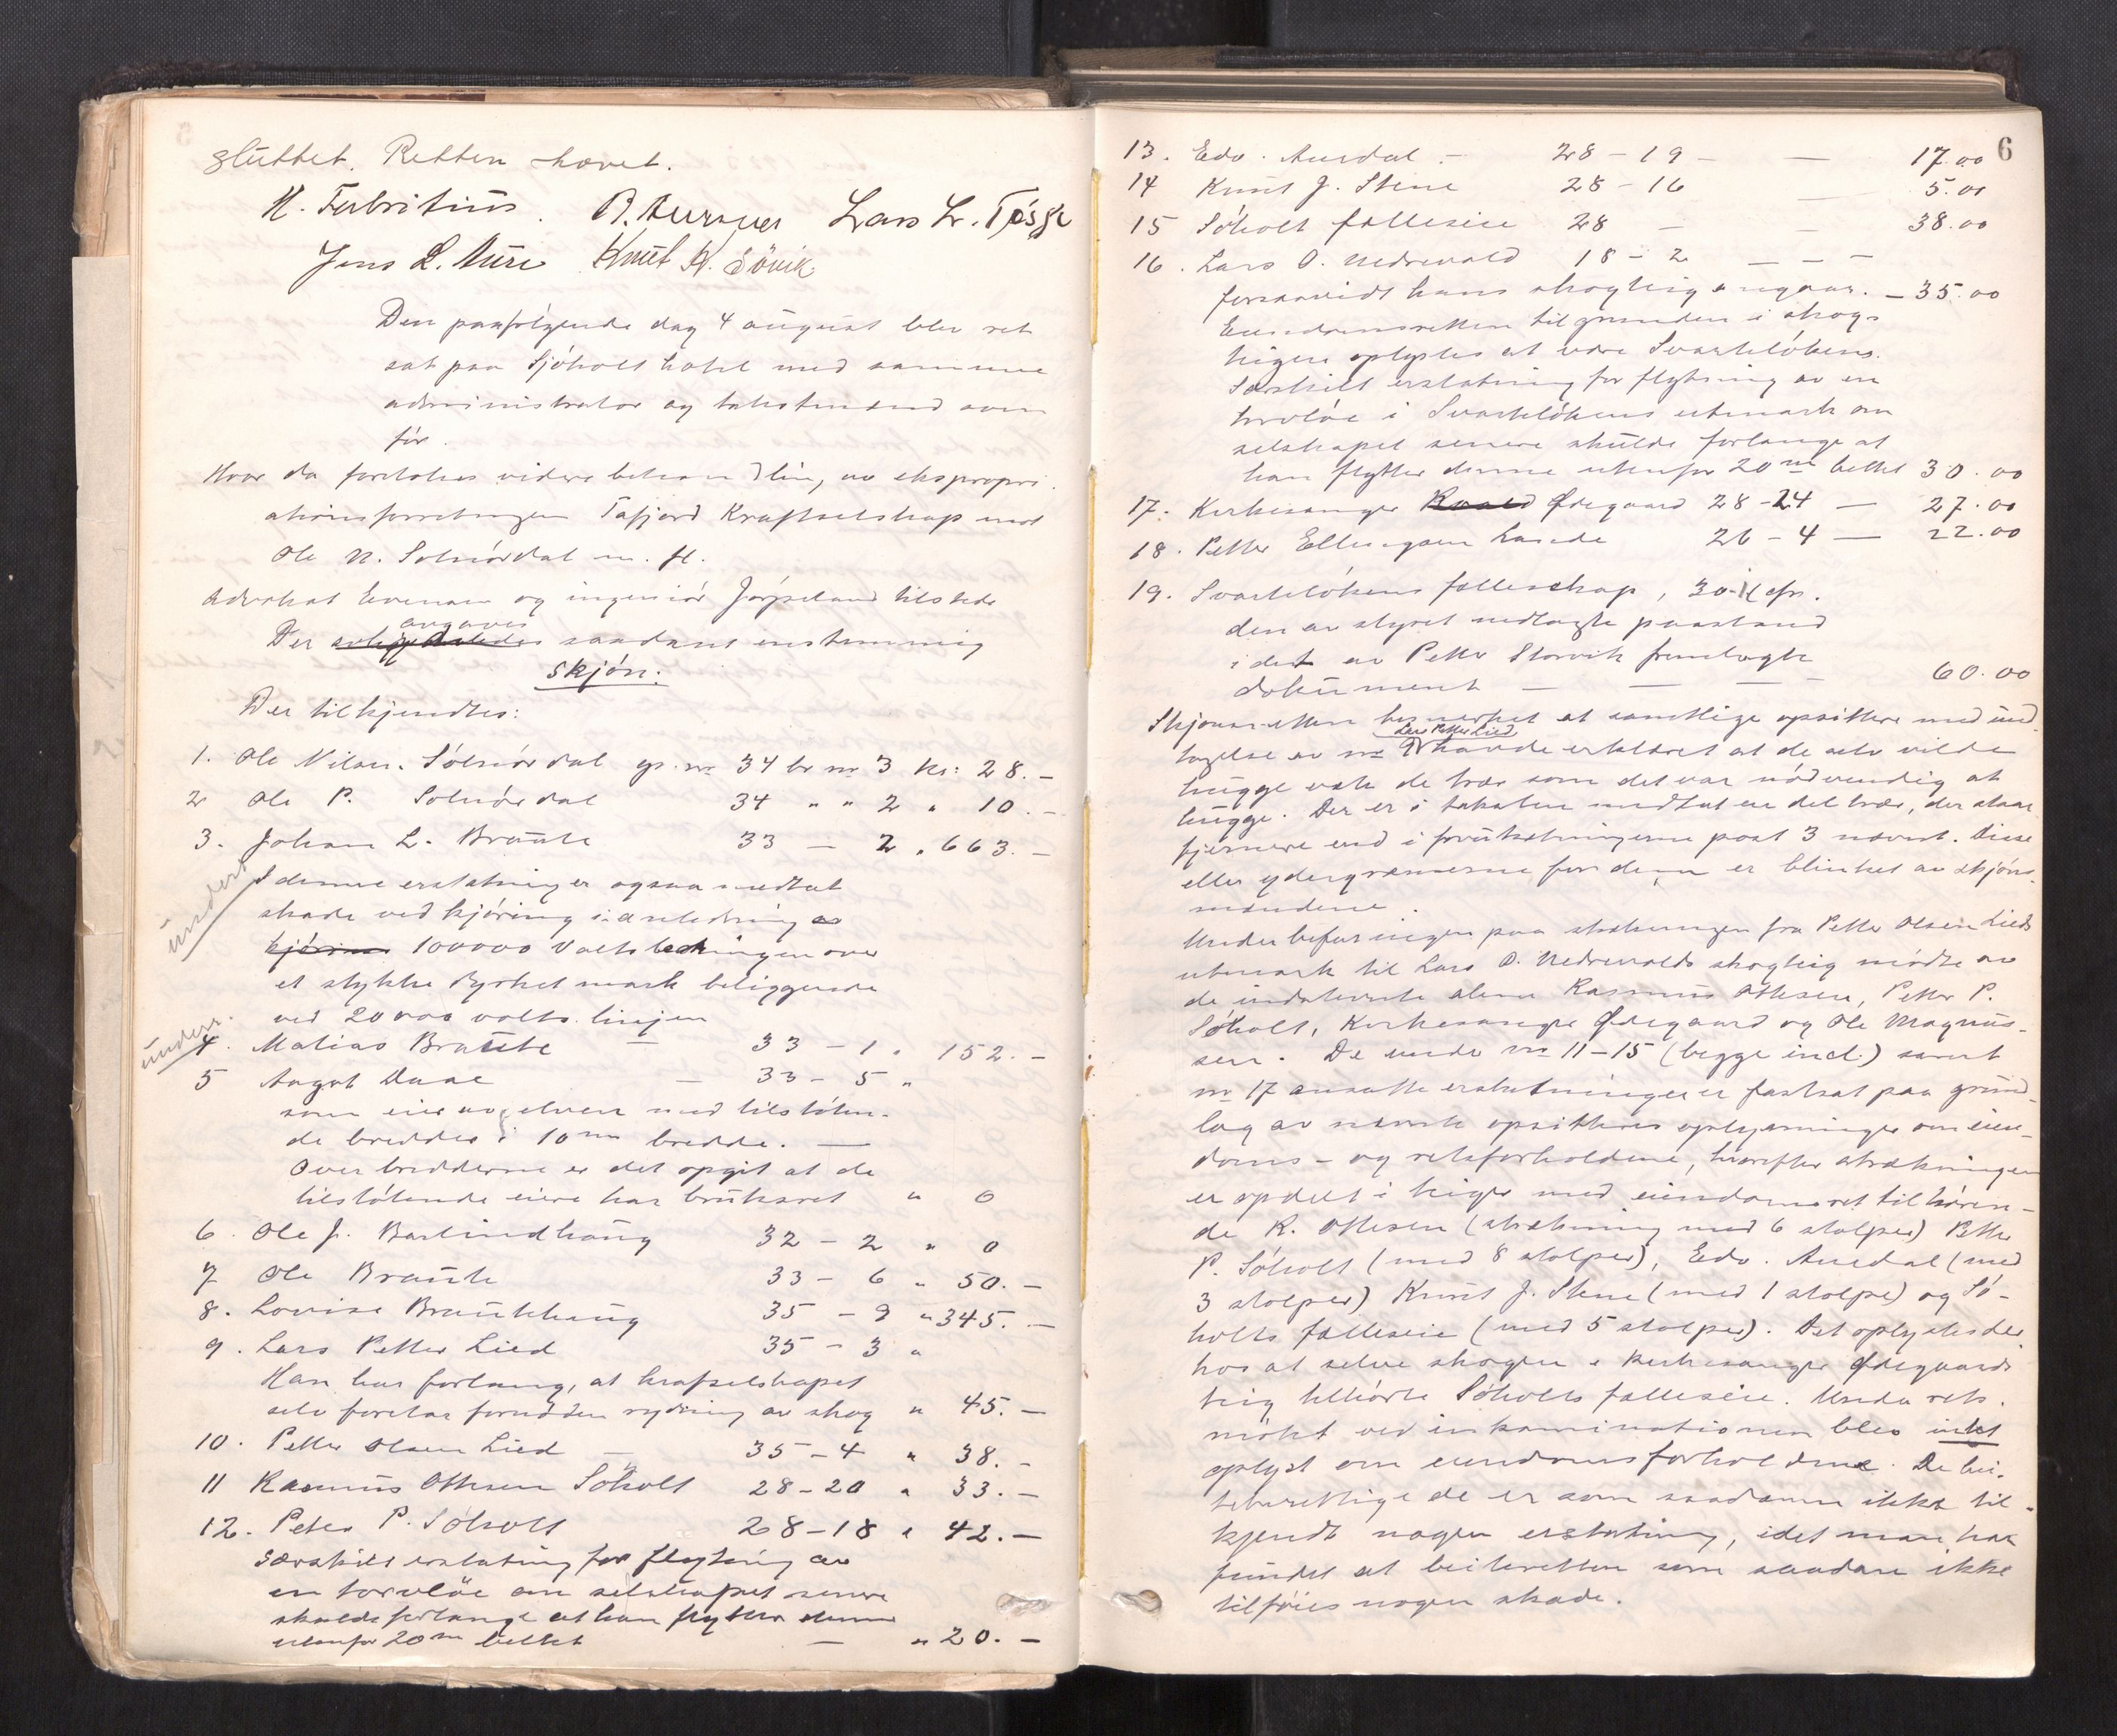 sluttet. Retten hævet.
H. Fabritius. Lars L. Tøsse
Jens L. Aure Knut K. Søvik
Den paafølgende dag 4 august blev ret
sat paa Sjøholt hotel med samme
administrator og takstmænd som
før.
Hvor da foretokes videre behandling av ekspropri-
ationsforretningen Tafjord Kraftselskap mot
Ole N. Solnørdal m. fl.
Advokat Evensen og ingeniør Jøpeland tilstede
avgaves
Der saadant enstemmig
Skjøn:
Der tilkjendtes:
1. Ole Nilsen Sølnørdal gr. nr 34 br nr 3 kr: 28.-
2 Ole P. Solnørdal 34 " " 2 " 10.-
3. Johan L. Braute 33 - 2 " 663.-
I denne erstatning er ogsaa medtat
undert
skade ved kjøring i anledning av
kjøring 100000 Volts ledningen over
et stykke dyrket mark beliggende
ved 20000 volts linjen
underr.
4. Matias Braute - 33 - 1 " 152.-
5 Aagot Daae - 33 - 5 "
som eier av elven med tilstøten-
de bredder i 10 m bredde. -
Over bredderne er det opgit at de
tilstøtende eiere har bruksret " 0
6. Ole J. Barlindhaug 32 - 2 " 0
7 Ole Braute 33 - 6 " 50.-
8. Lovise Brautehaug 35 - 9 " 345.-
9. Lars Petter Lied 35 - 3 "
Han har forlangt, at kraftselskapet
selv foretar fornødden rydning av skog " 45.-
10. Petter Olsen Lied - 35 - 4 " 38.-
11 Rasmus Ottesen Søholt 28-20 " 33.-
12. Peter P. Søholt 28-18 " 42.-
Særskilt erstatning for flytning av
en torvløe om selskapet senere
skulde forlange at han flytter denne
utenfor 20 m beltet - " 20.-
6
13. Edv. Ausdal - 28 - 19 - - 17.00
14 Knut J. Stene 28 - 16 - 5.00
15 Søholt fælleseie 28 - - 38.00
16. Lars O. Nedrevold 18 - 2 - - -
forsaavidt hans skogteig angaar. - 35.00
Eiendomsretten til grunden i skog-
teigen oplystes at være Svarteløkens.
Særskilt erstatning for flytning av en
torvløe i Svarteløkens utmark om
selskapet senere skulde forlange at
han flytter denne utenfor 20 m beltet 30.00
17. Kirkesanger Ødegaard 28-24 - 27.00
18. Petter Ellingsen Lande 26 - 4 - 22.00
19. Svarteløkens fællesskap, 30-1 cfr.
den av styret nedlagte paastand
i det av Petter Storvik fremlagte
dokument - - - - 60.00
Skjønsretten bemerket at samtlige opsittere med und-
Lars Petter Lied
tagelse av nr 9 havde erklæret at de selv vilde
hugge væk de trær som det var nødvendig at
hugge. Der er i taksten medtat en del trær, der staar
fjernere end i forutsætningerne post 3 nævnt. Disse
eller ydergrænserne for dem er blinket av skjøns-
mændene.
Under befaringen paa strækningen fra Petter Olsen Lieds
utmark til Lars O. Nedrevolds skogteig mødte av
de indstevnte alene Rasmus Ottesen, Petter P.
Søholt, Kirkesanger Ødegaard og Ole Magnus-
sen. De under nr 11-15 (begge incl.) samt
nr 17 ansatte erstatninger er fastsat paa grund-
lag av nævnte opsitteres oplysninger om eien-
doms- og retsforholdene, hvorefter strækningen
er opdelt i teiger med eiendomsret tilhøren-
de R. Ottesen (strækning med 6 stolper) Petter
P. Søholt (med 8 stolper), Edv. Ausdal (med
3 stolper) Knut J. Stene (med 1 stolpe) og Sø-
holts fælleseie (med 5 stolper). Det oplystes der-
hos at selve skogen i kirkesanger Ødegaards
teig tilhørte Søholts fælleseie. Under rets-
møtet ved inkaminationen blev intet
oplyst om eiendomsforholdene. De bei-
teberettigede er som saadanne ikke til-
kjendt nogen erstatning, idet man har
fundet at beiteretten som saadan ikke
tilføies nogen skade.